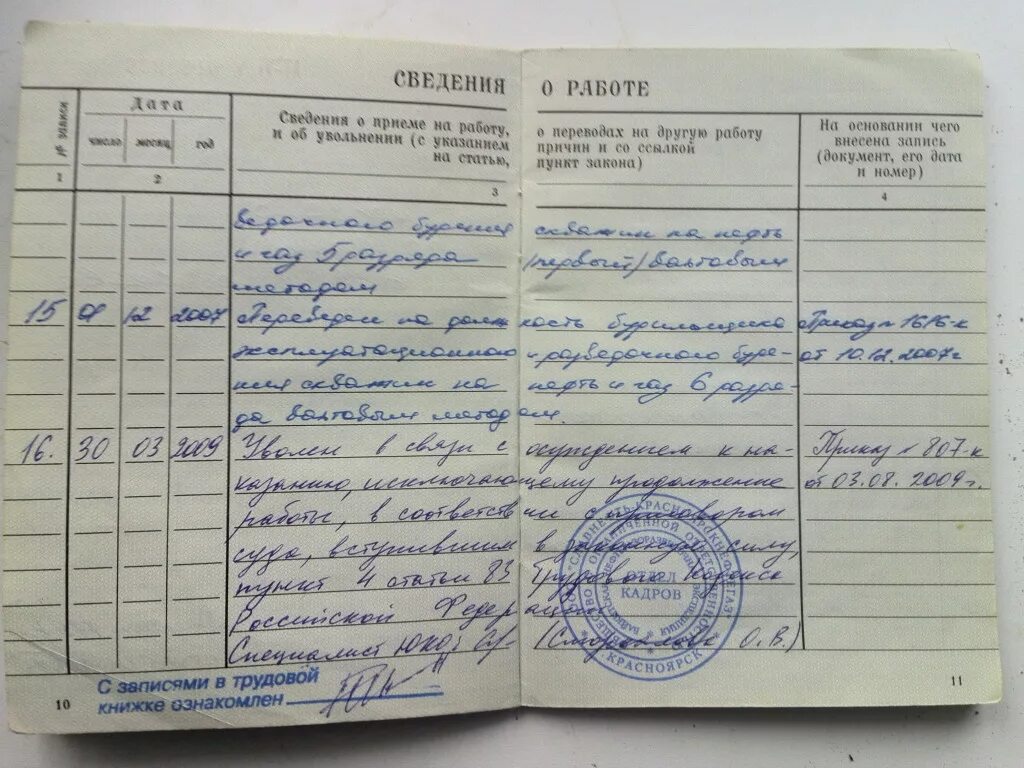 СВЕДЕНИЯ О РАБОТЕ
№ записи
Дата
число месяц год
Сведения о приеме на работу, и об увольнении (с указанием на статью,
о переводах на другую работу причин и со ссылкой пункт закона)
На основании чего внесена запись (документ, его дата и номер)
1 2 3 4
ведочного бурения скважин на нефть
и газ 5 разряда (первый) вахтовым
методом
15 12 2007 Переведен на должность бурильщика Приказ № 1616-к
эксплуатационного и разведочного буре- от 10.12.2007г
ния скважин на нефть и газ 6 разря-
да вахтовым методом.
16. 30 03 2009 Уволен в связи с осуждением к на- Приказ № 807-к
казанию, исключающему продолжение от 03.08.2009г.
работы, в соответствии с приговором
суда, вступившим в законную силу,
пункт 4 статьи 83 Трудового кодекса
Российской Федерации
Специалист О.В.)
ОТДЕЛ
КАДРОВ
КРАСНОЯРСК
С записями в трудовой
книжке ознакомлен
10
11